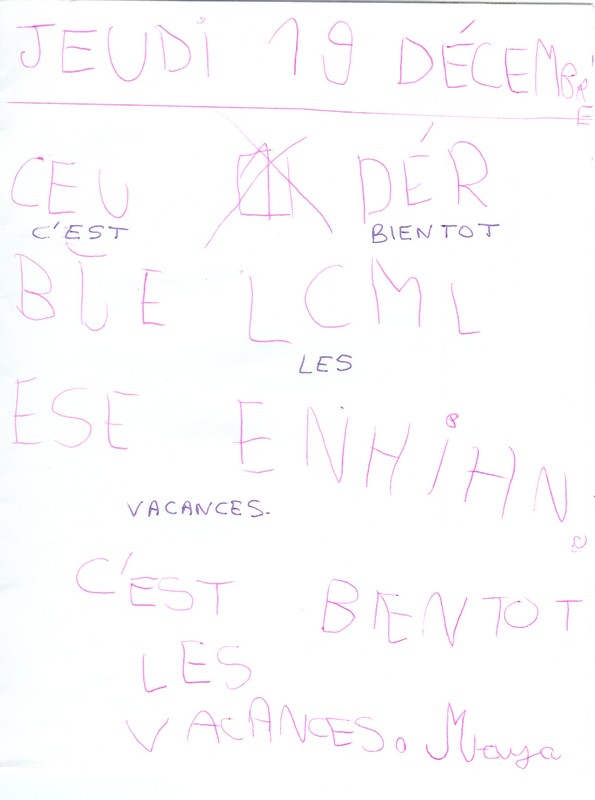 JEUDi 19 DÉCEMBRE
CEU DÉR
C'EST BIENTOT
BUE LCML
LES
ESE ENHiHN
VACANCES.
C'EST BIENTOT
LES
VACANCES. Maya